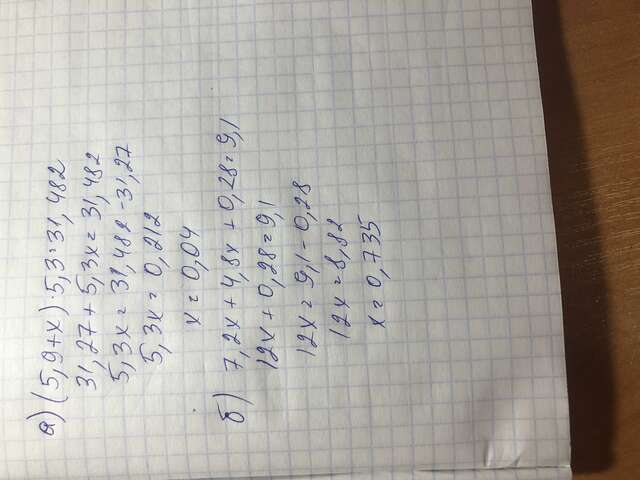 а) (5,9+х)·5,3=31,482
31,27+5,3х=31,482
5,3х=31,482-31,27
5,3х=0,212
х=0,04
б) 7,2х+4,8х+0,28=9,1
12х+0,28=9,1
12х=9,1-0,28
12х=8,82
х=0,735